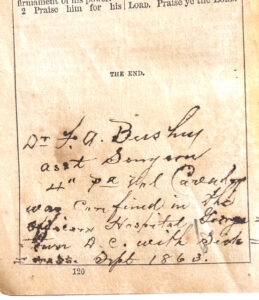 firmament of his power
2 Praise him for his LORD. Praise ye the LORD.
THE END.
Dr F. A. Bushey
asst Surgeon
4" Pa Vol Cavalry
was Confined in the
officers Hospital George
town D. C. with Sick
ness. Sept 1863.
120